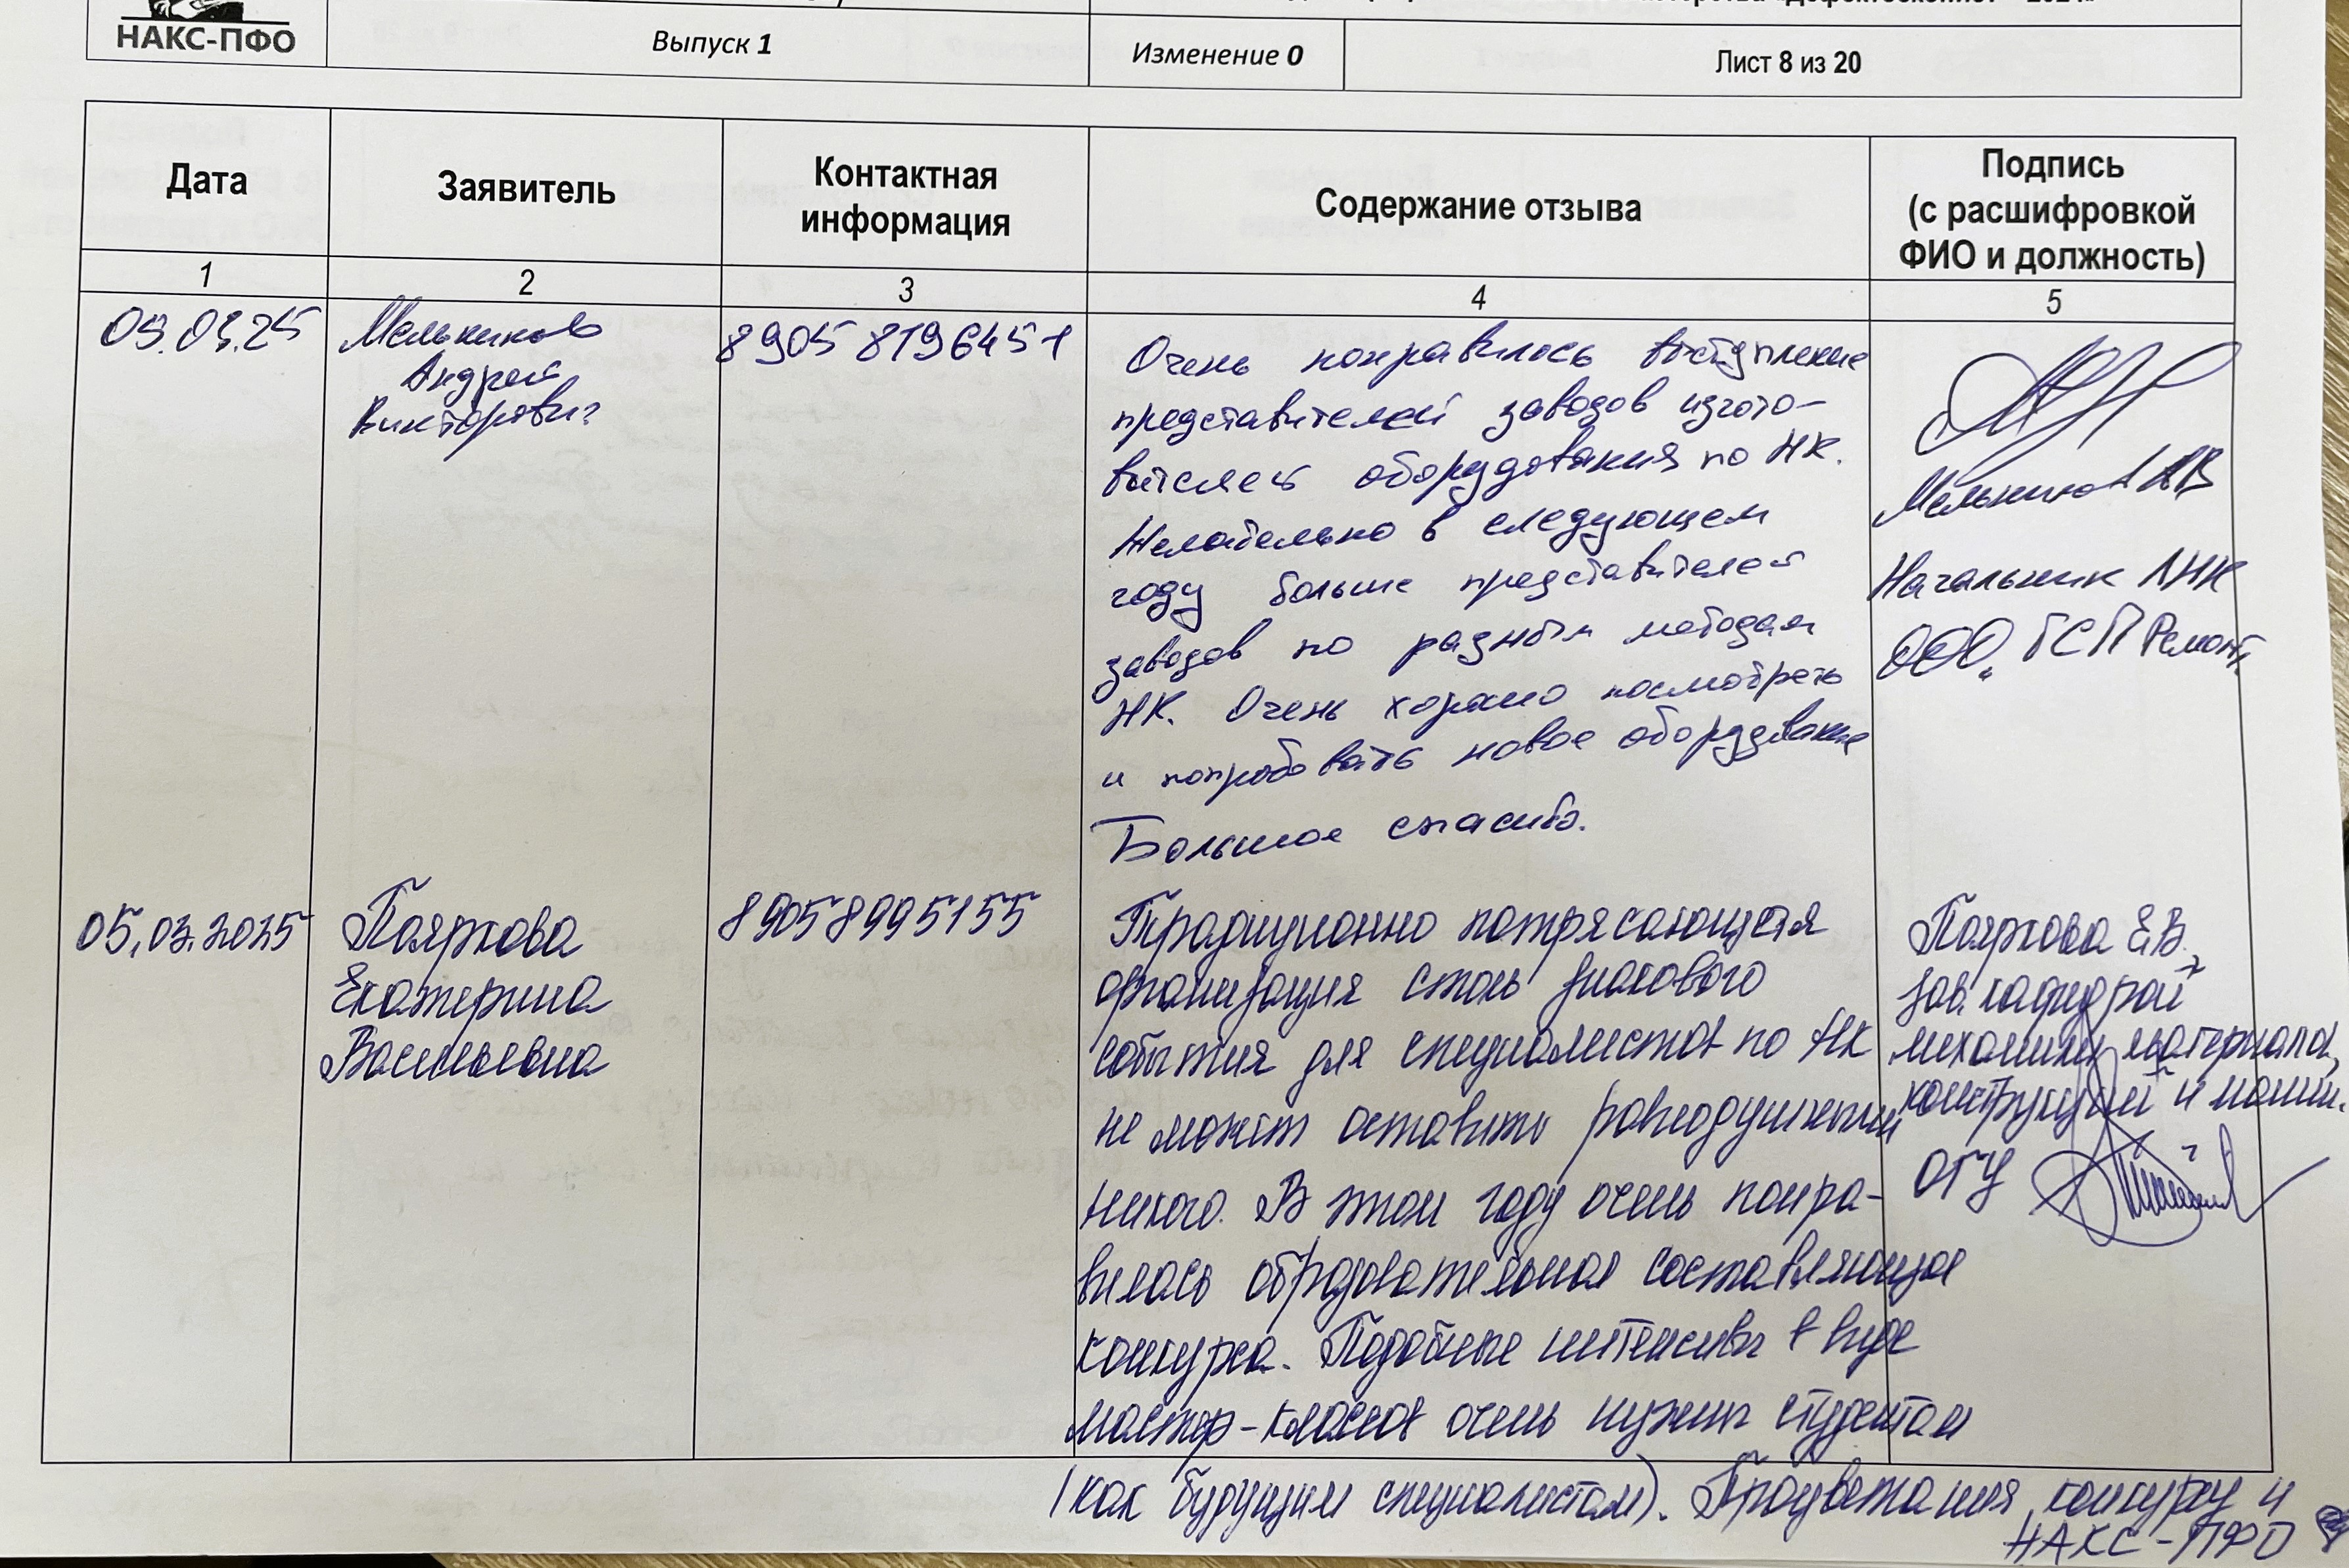 НАКС-ПФО
Выпуск 1
Изменение 0
Лист 8 из 20
Дата
Заявитель
Контактная
информация
Содержание отзыва
Подпись
(с расшифровкой
ФИО и должность)
1
2
3
4
5
05.03.25
Мельников
Андрей
Викторович
8905 8196451
Очень понравилось выступление
представителей заводов изгото-
вителей оборудования по НК.
Желательно в следующем
году больше представителей
заводов по разным методам
НК. Очень хорошо посмотреть
и попробовать новое оборудование
Большое спасибо.
Мельников АВ
Начальник ЛНК
ООО „ГСП Ремонт"
05.03.2025
Пояркова
Екатерина
Васильевна
89058995155
Традиционно потрясающая
организация столь знакового
события для специалистов по НК
не может оставить равнодушным
никого. В этом году очень понра-
вилась образовательная составляющая
конкурса. Подобные интенсивы в виде
мастер-классов очень нужны студентам
(как будущим специалистам). Процветания конкурсу и
НАКС-ПФО
Пояркова Е.В.,
зав. кафедрой
механики материалов,
конструкций и машин.
ОГУ